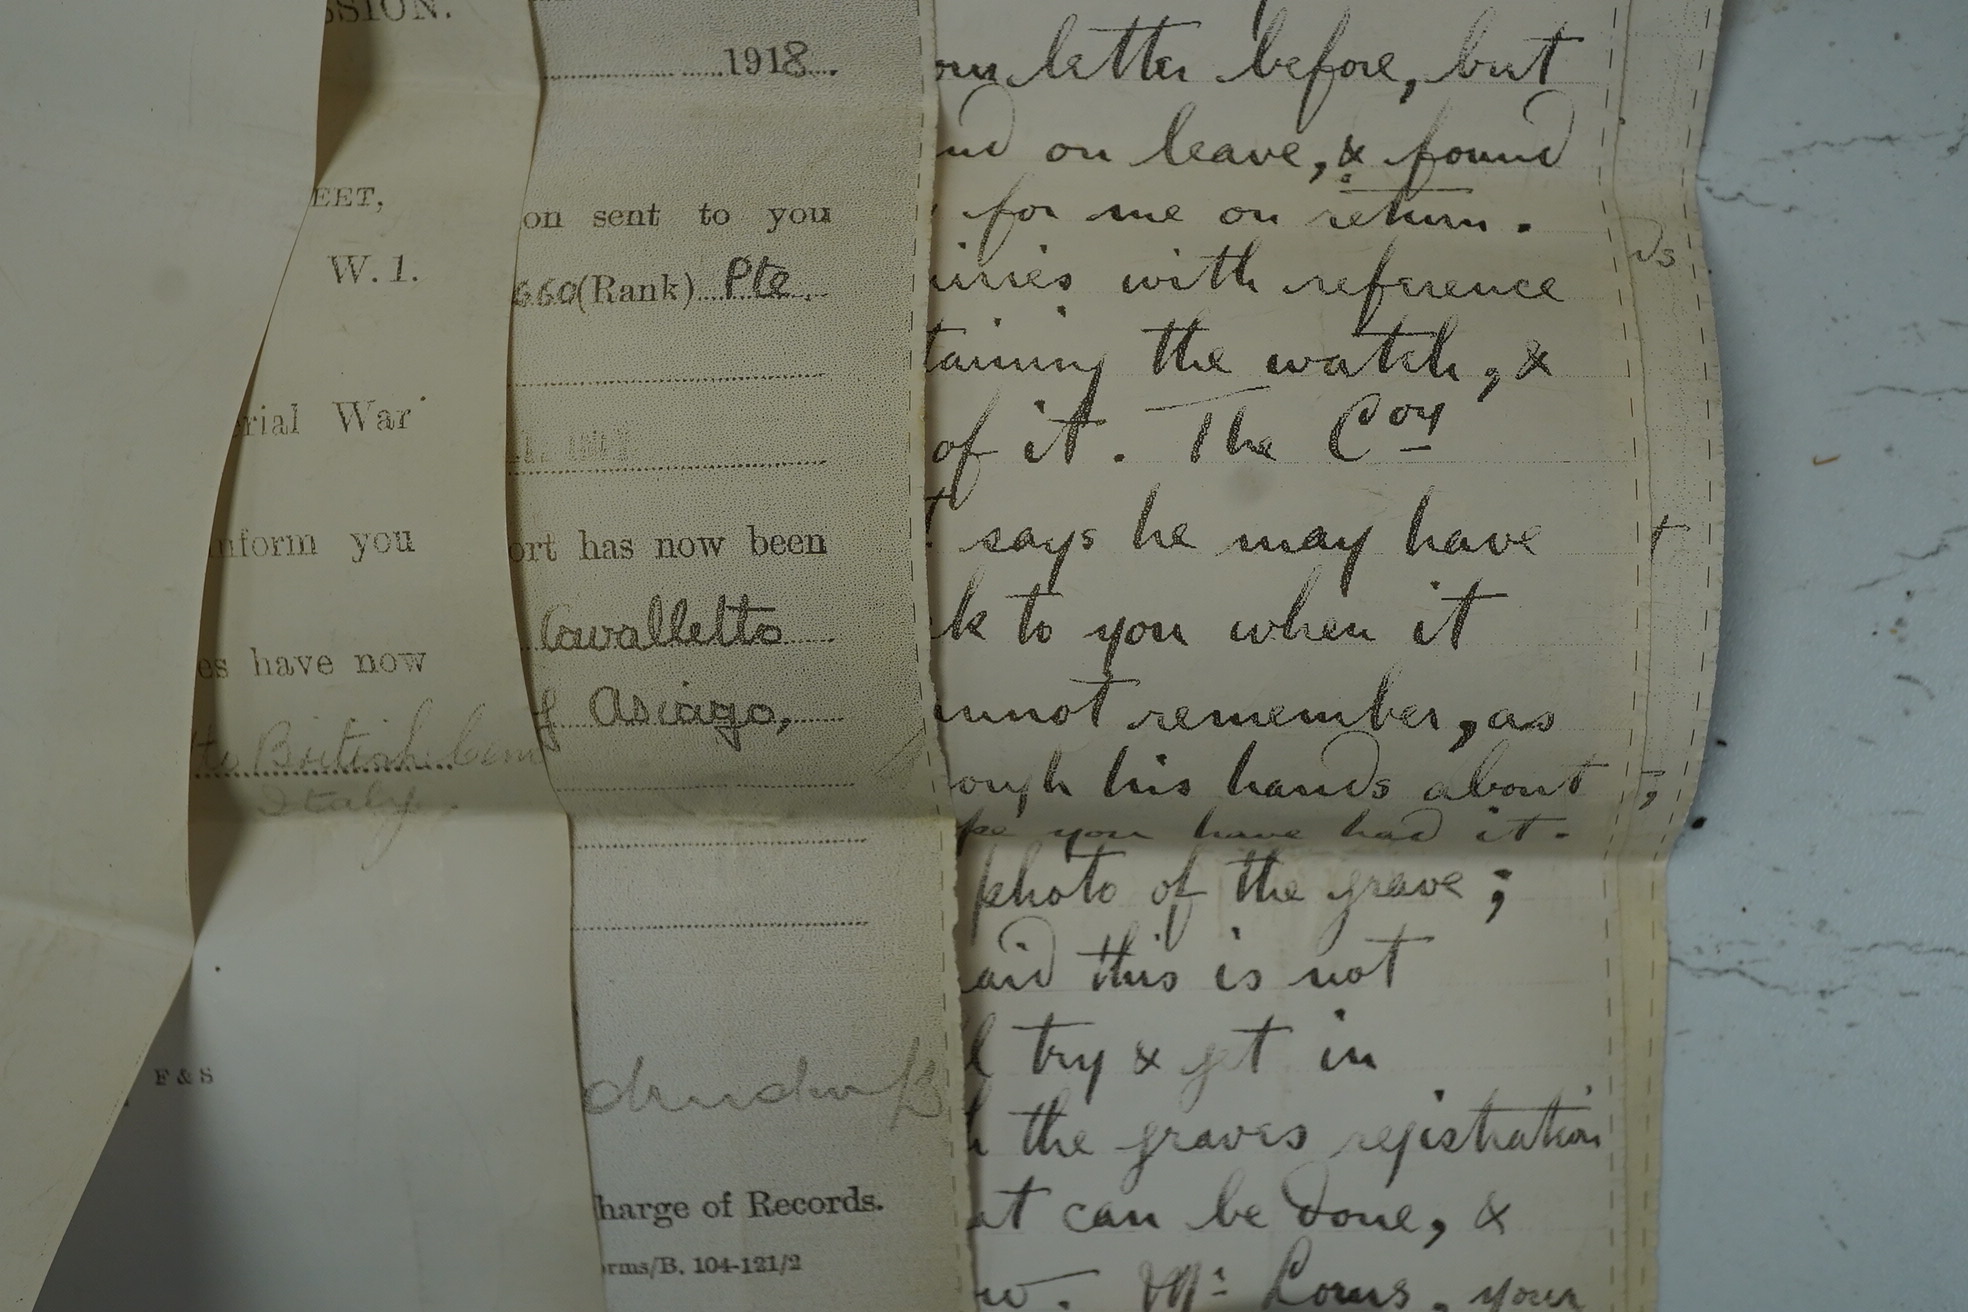 SSION.
EET,
W. 1.
erial War
inform you
es have now
to British Cem
Italy.
F & S
1918.
on sent to you
660 (Rank) Pte.
ort has now been
Cavalletto
f Asiago,
harge of Records.
orms/B. 104-121/2
our letter before, but
nd on leave, & found
for me on return.
uiries with reference
taining the watch, &
of it. The Coy
says he may have
k to you when it
annot remember, as
ough his hands about
pe you have had it.
photo of the grave;
aid this is not
l try & get in
h the graves registration
at can be done, &
w. Mr Lorus, your
ds
t
;